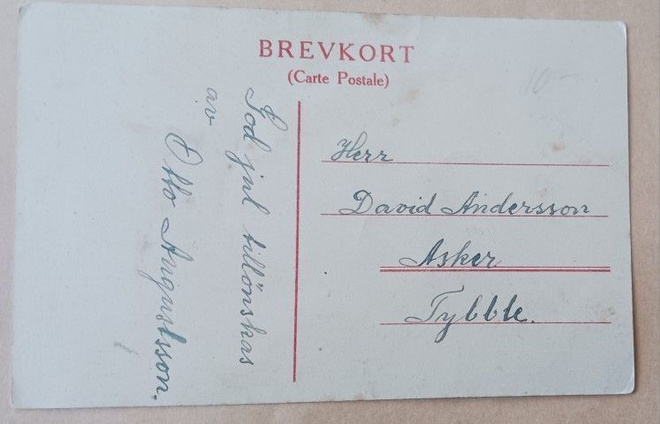 BREVKORT
(Carte Postale)
God jul tillönskas
av
Otto Augustsson.
Herr
David Andersson
Asker
Tybble.